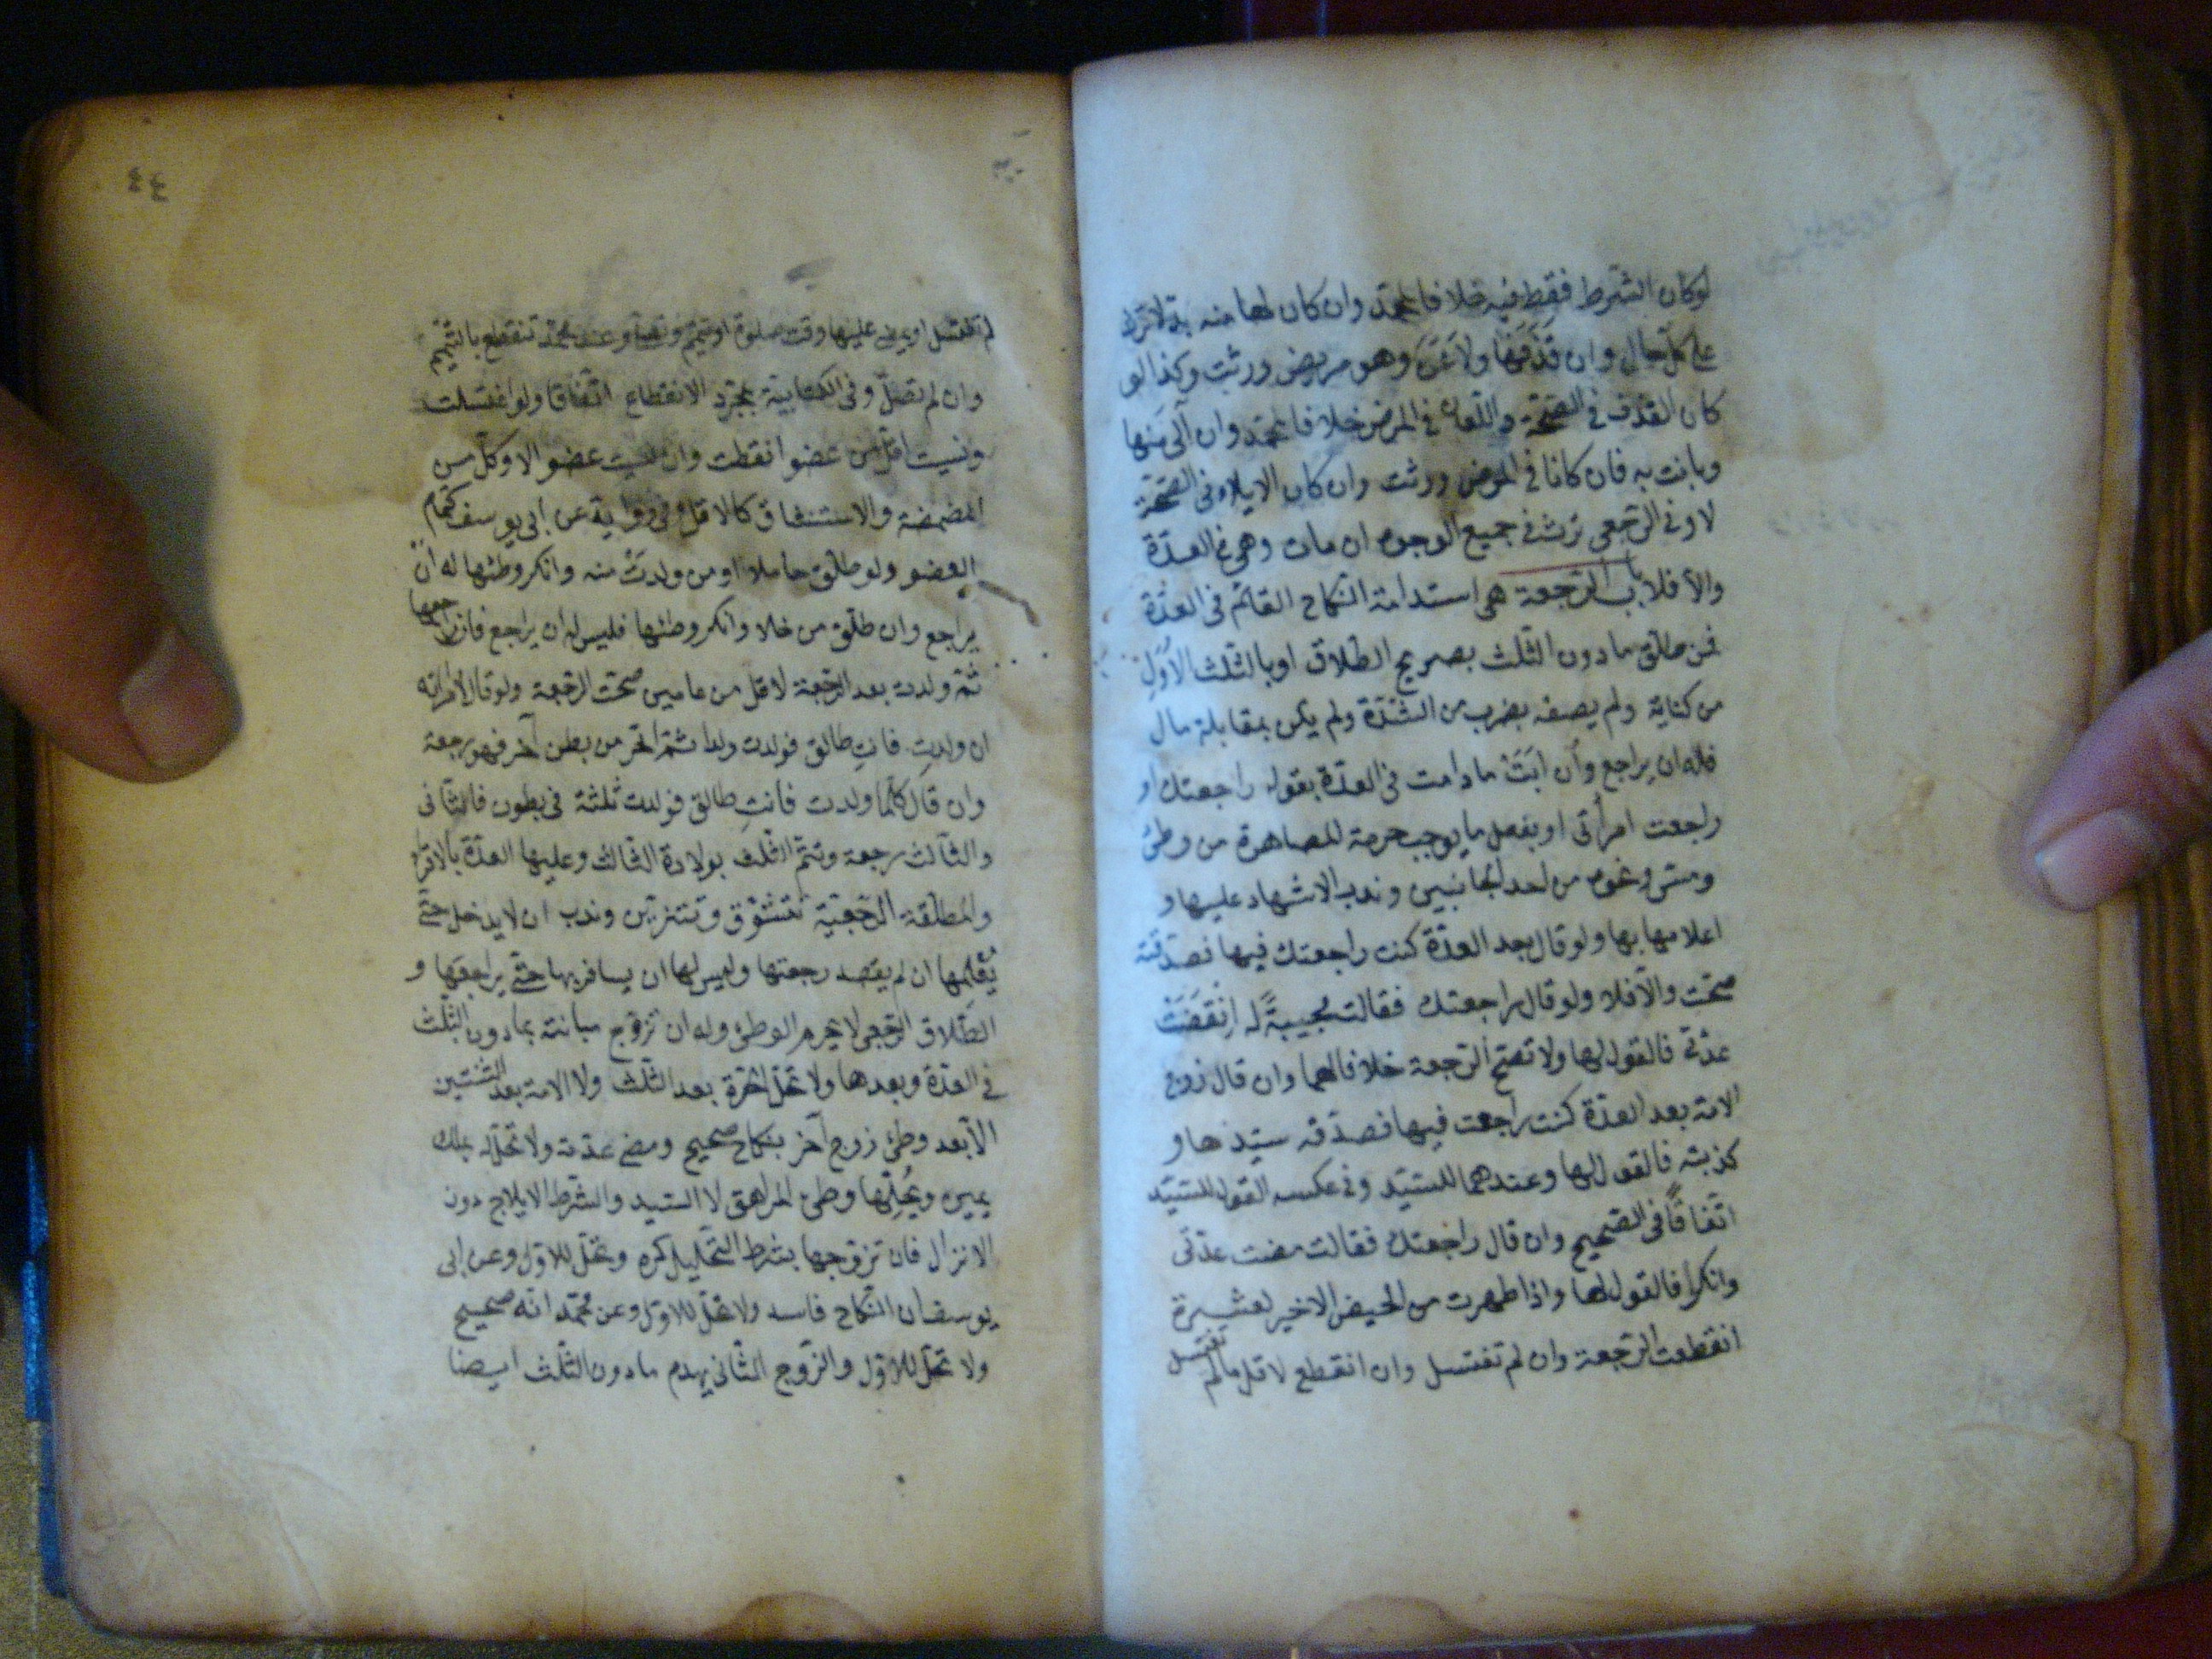 لوكان الشرط فقط فيه خلافا لمحمد وان كان لها منه بد لا ترث
على كل حال وان قذفها ولاعن وهو مريض ورثت وكذا لو
كان القذف في الصحة واللعان في المرض خلافا لمحمد وان آلى منها
وبانت به فان كانا في المرض ورثت وان كان الايلاء في الصحة
لا وفي الرجعي ترث في جميع الوجوه ان مات وهي في العدة
والا فلا باب الرجعة هي استدامة النكاح القائم في العدة
فمن طلق ما دون الثلث بصريح الطلاق او بالثلث الاُوَلِ
من كناية ولم يصفه بضرب من الشدة ولم يكن بمقابلة مال
فله ان يراجع وان ابَتْ ما دامت في العدة بقوله راجعتك او
راجعت امرأتي او بفعل ما يوجب حرمة المصاهرة من وطئ
ومس ونحوه من احد الجانبين وندب الاشهاد عليها و
اعلامها بها ولو قال بعد العدة كنت راجعتك فيها فصدقته
صحت والا فلا ولو قال راجعتك فقالت مجيبةً له اِنْقَضَتْ
عدتي فالقول لها ولا تصح الرجعة خلافا لهما وان قال زوج
الامة بعد العدة كنت راجعت فيها فصدقه سيدها و
كذبته فالقول لها وعندهما للسيد وفي عكسه القول للسيد
اتفاقًا في الصحيح وان قال راجعتك فقالت مضت عدتي
وانكرا فالقول لها واذا طهرت من الحيض الاخير لعشرة
انقطعت الرجعة وان لم تغتسل وان انقطع لاقل ما لم
تغتسل
٤٤
لم تغتسل او يمضي عليها وقت صلوة او تيمم وتصلي وعند محمد تنقطع بالتيمم
وان لم تصل وفي الكتابية بمجرد الانقطاع اتفاقا ولو اغتسلت
ونسيت اقل من عضو انقطت وان نسيت عضوا لا وكل من
المضمضة والاستنشاق كالاقل وفي رواية عن ابي يوسف كتمام
العضو ولو طلق حاملا او من ولدتْ منه وانكر وطئها له ان
يراجع وان طلق من خلا وانكر وطئها فليس له ان يراجع فان راجعها
ثم ولدت بعد الرجعة لاقل من عامين صحت الرجعة ولو قال لامرأته
ان ولدتِ فانتِ طالق فولدت ولدا ثم آخر من بطن آخر فهو رجعة
وان قال كلما ولدت فانتِ طالق فولدت ثلثة في بطون فالثاني
والثالث رجعة وتتم الثلث بولادة الثالث وعليها العدة بالاقراء
والمطلقة الرجعية تتشوق وتتزين وندب ان لا يدخل حتى
يُعْلِمها ان لم يقصد رجعتها وليس لها ان يسافر بها حتى يراجعها و
الطلاق الرجعي لا يحرم الوطئ وله ان تزوج مبانته بما دون الثلث
في العدة وبعدها ولا تحل الحرة بعد الثلث ولا الامة بعد الثنتين
الا بعد وطئ زوج آخر بنكاح صحيح ومضي عدته ولا تحل له بملك
يمين ويُحِلّها وطئ المراهق لا السيد والشرط الايلاج دون
الانزال فان تزوجها بشرط التحليل كره وتحل للاول وعن ابي
يوسف ان النكاح فاسد ولا تحل للاول وعن محمد انه صحيح
ولا تحل للاول والزوج الثاني يهدم ما دون الثلث ايضا